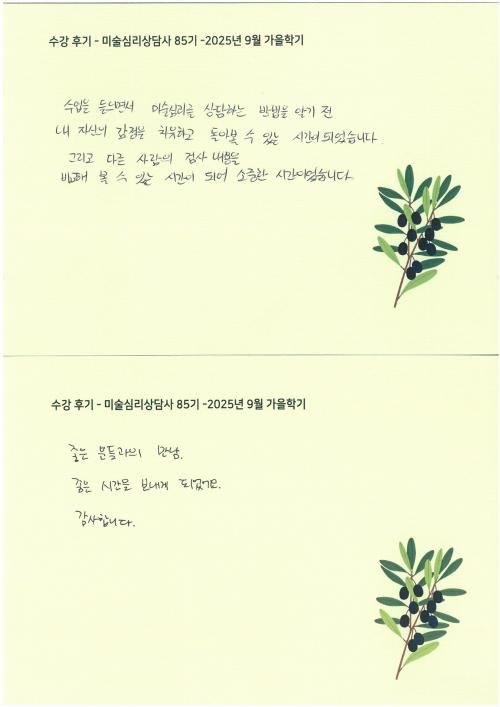 수강 후기 - 미술심리상담사 85기 -2025년 9월 가을학기
수업을 들으면서 미술심리를 상담하는 방법을 알기 전
내 자신의 감정을 치유하고 돌아볼 수 있는 시간이 되었습니다.
그리고 다른 사람의 검사 내용을
비교해 볼 수 있는 시간이 되어 소중한 시간이었습니다.
수강 후기 - 미술심리상담사 85기 -2025년 9월 가을학기
좋은 분들과의 만남.
좋은 시간을 보내게 되었어요.
감사합니다.